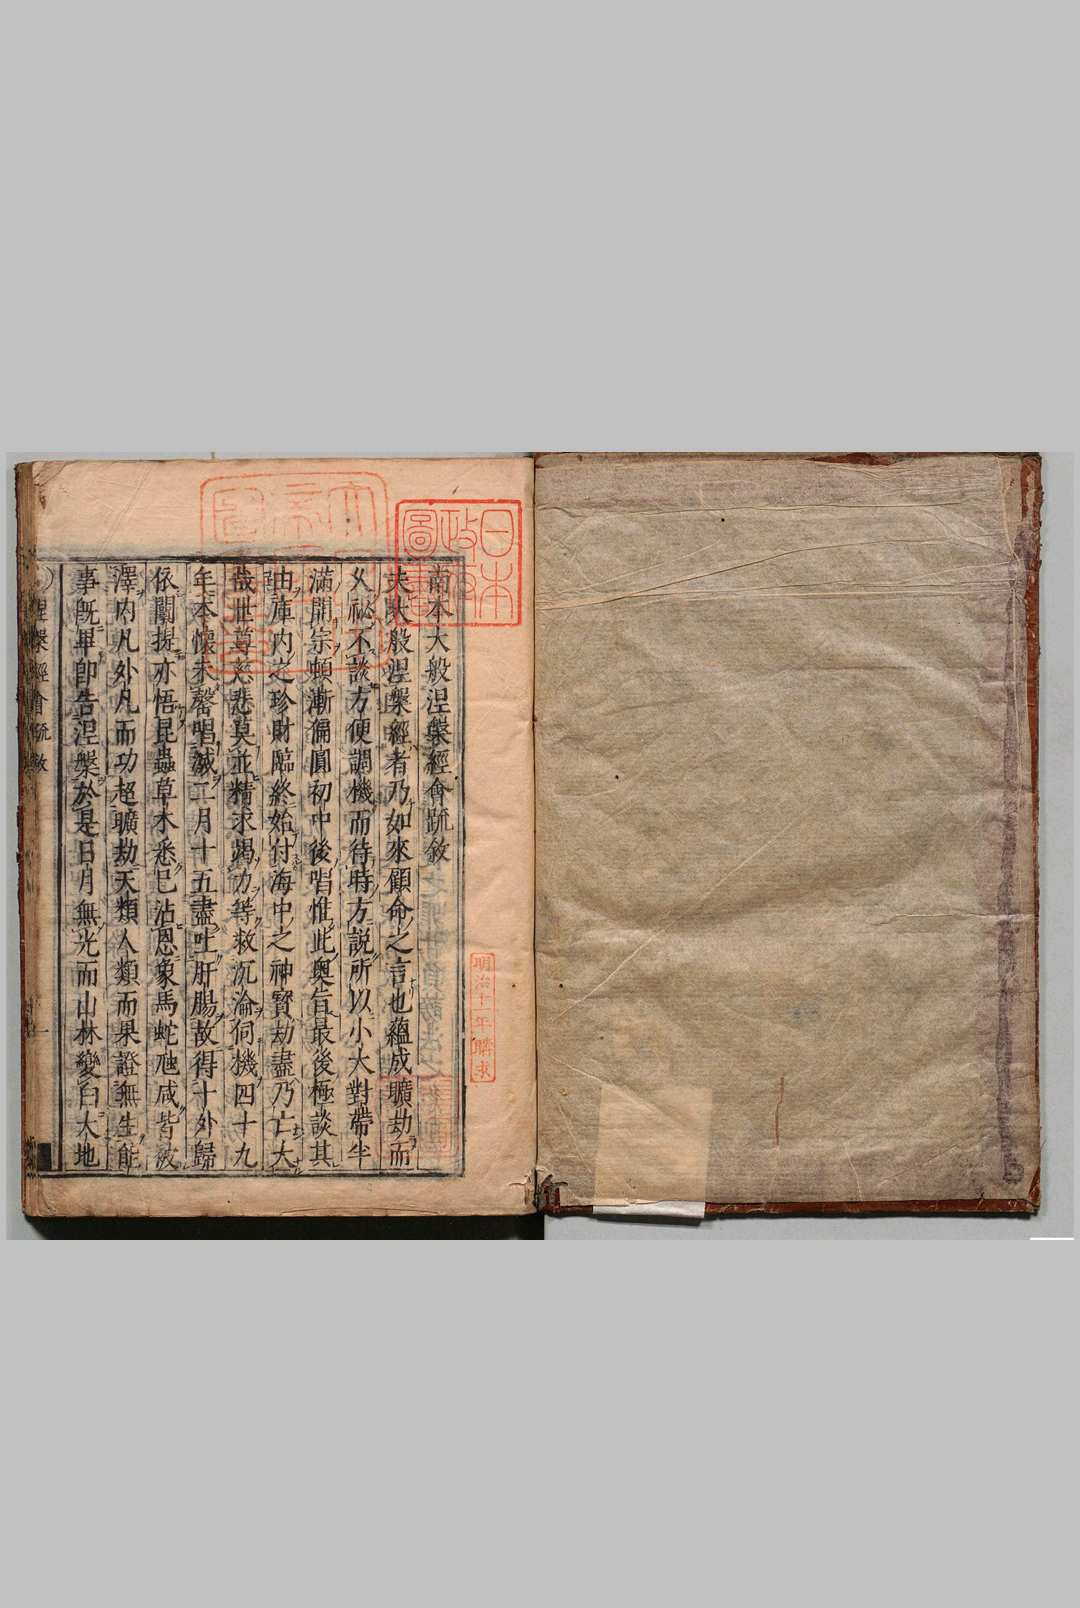 南本大般涅槃經會疏敘
夫大般涅槃經者乃如來顧命之言也蘊成曠劫而
久祕不談方便調機而待時方説所以小大對帶半
滿開宗頓漸偏圓初中後唱惟此奧旨最後極談其
由庫内之珍財臨終始付海中之神寶劫盡乃亡大
哉世尊慈悲莫並精求竭力等救沉淪伺機四十九
年本懷未罄唱滅二月十五盡吐肝腸故得十外歸
依闡提亦悟昆蟲草木悉已沾恩象馬蛇虺咸皆被
澤内凡外凡而功超曠劫天類人類而果證無生能
事既畢卽告涅槃於是日月無光而山林變白大地
涅槃經會疏敘
一
日本
政府
圖書
明治十一年購求